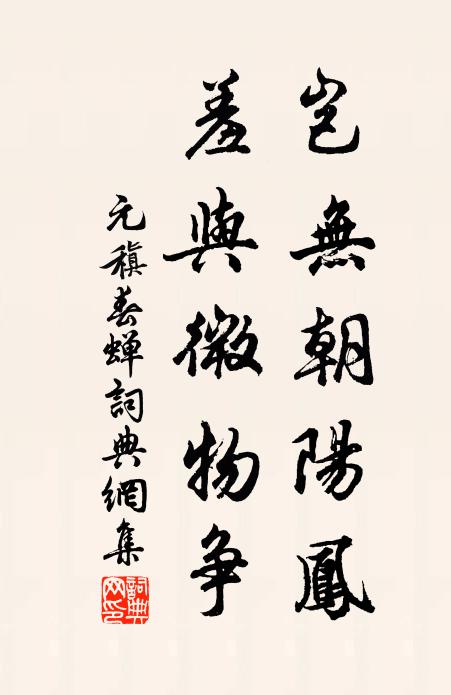 豈無朝陽鳳
羞與微物爭
元稹春蟬詞典網集
詞典网印